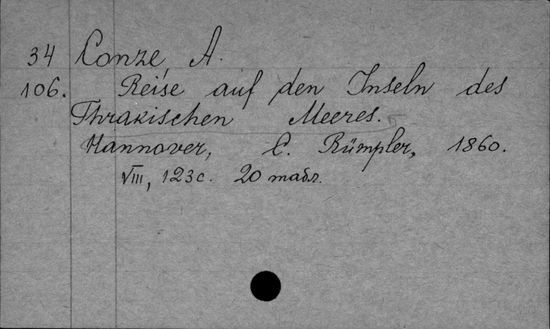 34 Conze, A.
106. Reise auf den Inseln des
Thrakischen Meeres.
Hannover, C. Rümpler, 1860.
VIII, 123 с. 20 табл.